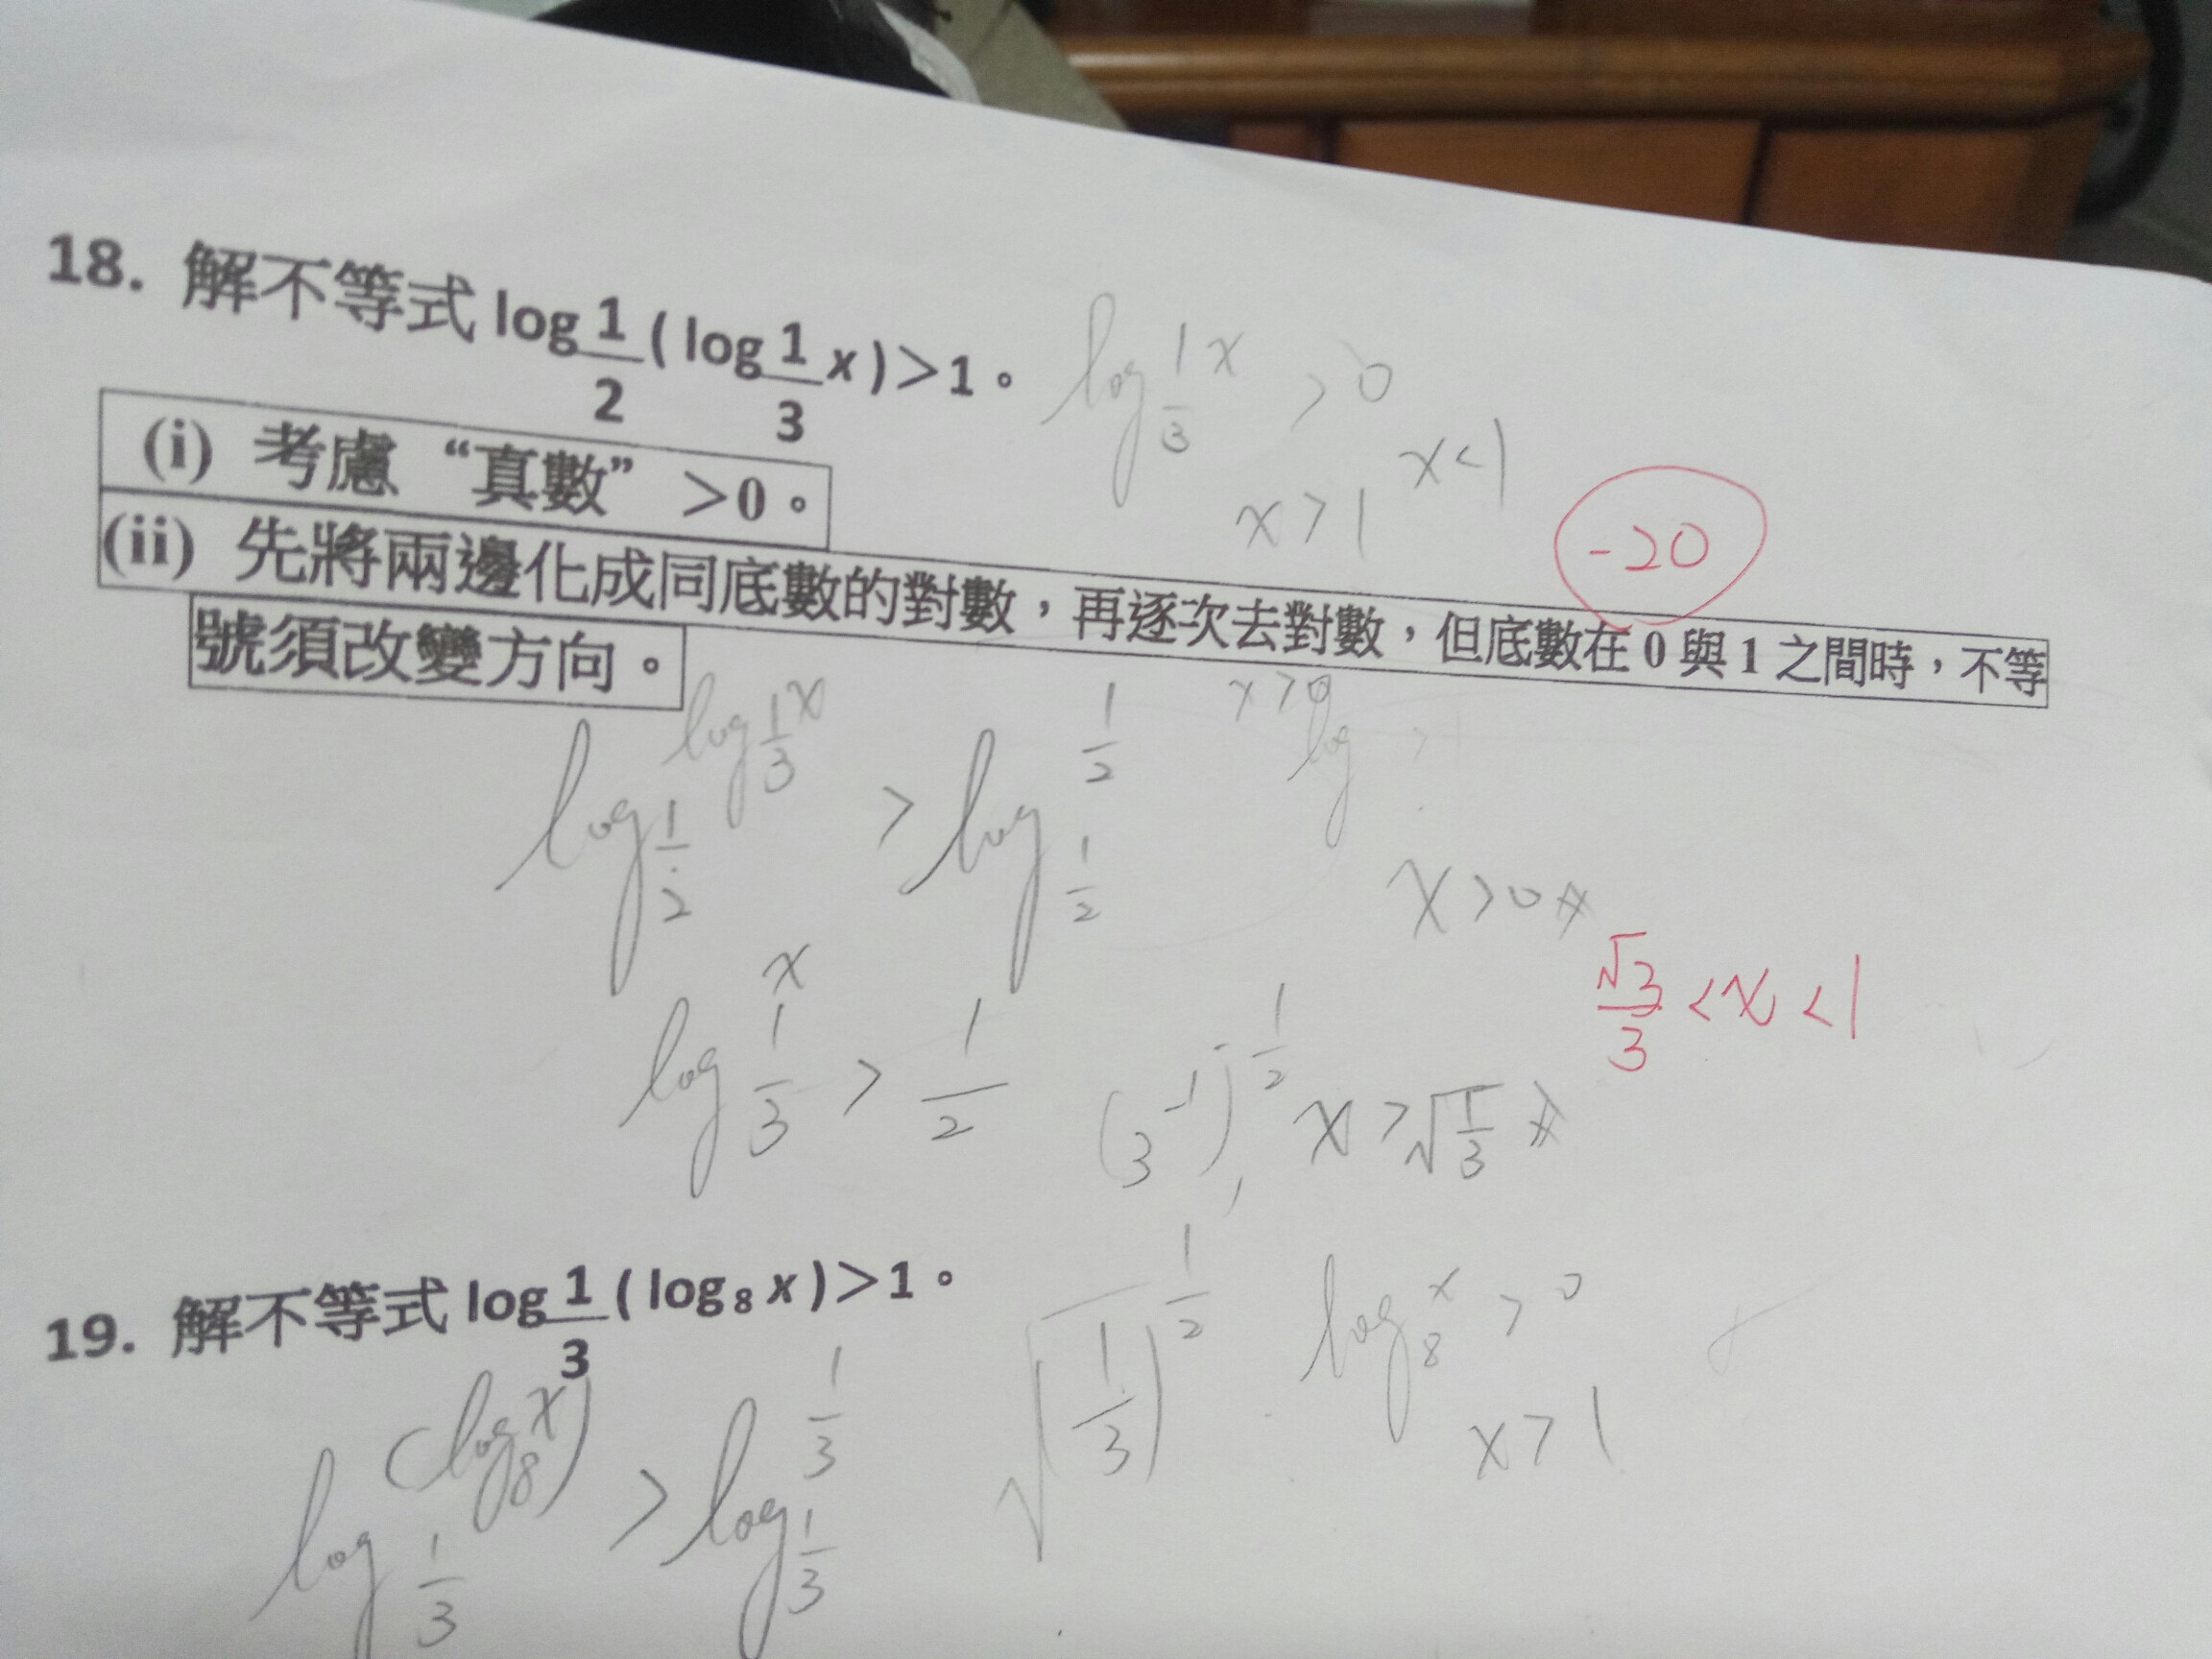 18. 解不等式 log 1/2 ( log 1/3 x ) > 1。
log 1/3 x > 0
x < 1
x > 1
(i) 考慮 “真數” >0。
-20
(ii) 先將兩邊化成同底數的對數，再逐次去對數，但底數在 0 與 1 之間時，不等
號須改變方向。
x > 0
log
log 1/2 log 1/3 x > log 1/2 1/2
x > 0 #
√3/3 < x < 1
log 1/3 x > 1/2
(3^-1)^-1/2
x > √1/3 #
19. 解不等式 log 1/3 ( log 8 x ) > 1。
√(1/3)^1/2
log 8 x > 0
x > 1
log 1/3 (log 8 x) > log 1/3 1/3